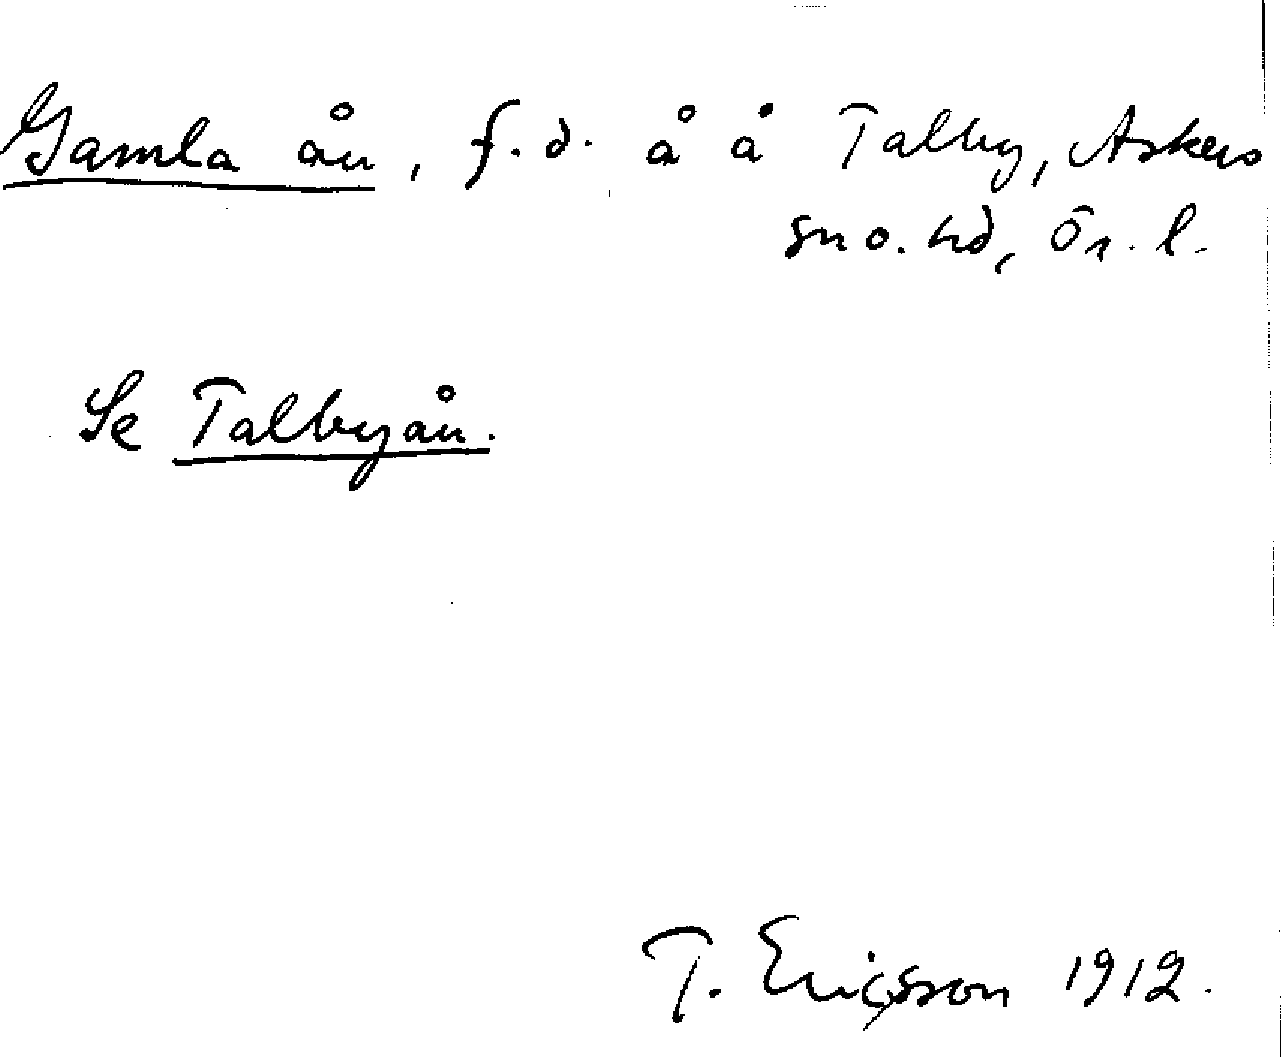 Gamla ån, f.d. å å Talby, Askers
sn o. hd, Ör. l.
Se Talbyån.
T. Ericsson 1912.